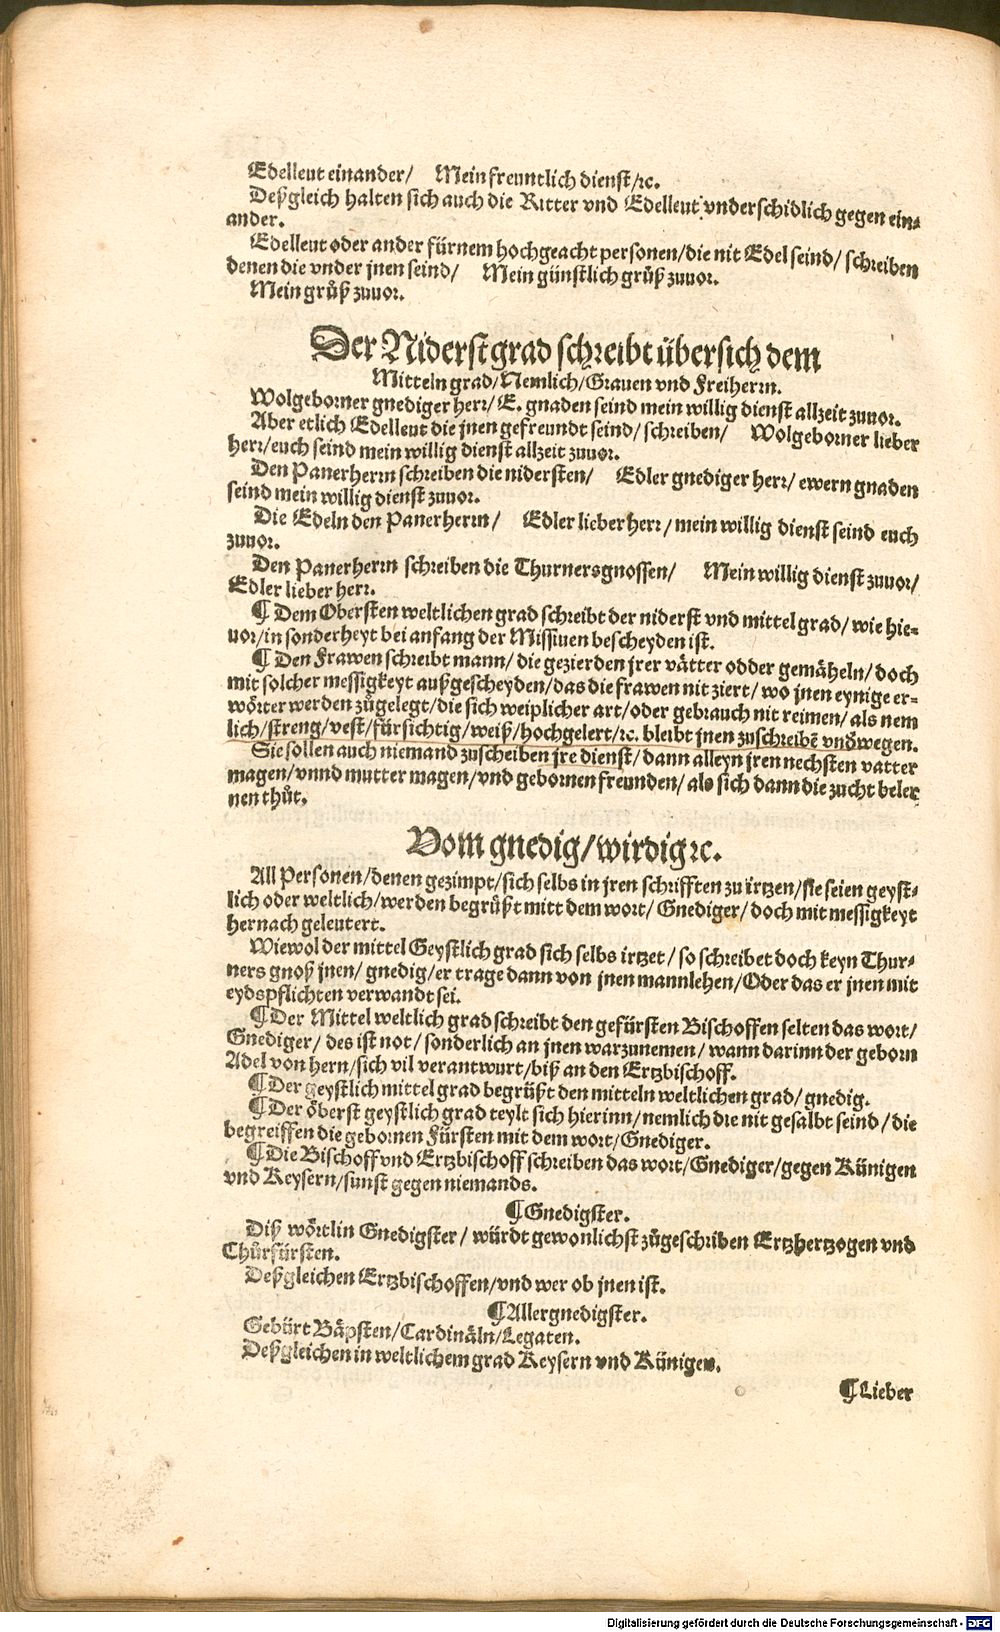 Edelleut einander/ Mein freuntlich dienst/ꝛc.
Deßgleich halten sich auch die Ritter vnd Edelleut vnderschidlich gegen ein⸗
ander.
Edelleut oder ander fürnem hochgeacht personen/die nit Edel seind/ schreiben
denen die vnder jnen seind/ Mein günstlich grůß zuuor.
Mein grůß zuuor.
Der Niderst grad schreibt übersich dem
Mitteln grad/Nemlich/Grauen vnd Freiherrn.
Wolgeborner gnediger herr/ E. gnaden seind mein willig dienst allzeit zuuor.
Aber etlich Edelleut die jnen gefreundt seind/ schreiben/ Wolgeborner lieber
herr/euch seind mein willig dienst allzeit zuuor.
Den Panerherrn schreiben die nidersten/ Edler gnediger herr/ ewern gnaden
seind mein willig dienst zuuor.
Die Edeln den Panerherrn/ Edler lieber herr/ mein willig dienst seind euch
zuuor.
Den Panerherrn schreiben die Thurnersgnossen/ Mein willig dienst zuuor/
Edler lieber herr.
¶ Dem Obersten weltlichen grad schreibt der niderst vnd mittel grad/ wie hie⸗
uor/in sonderheyt bei anfang der Missiuen bescheyden ist.
¶ Den Frawen schreibt mann/ die gezierden jrer vätter odder gemäheln/ doch
mit solcher messigkeyt außgescheyden/das die frawen nit ziert/ wo jnen eynige er⸗
wörter werden zůgelegt/die sich weiplicher art/oder gebrauch nit reimen/ als nem
lich/streng/vest/fürsichtig/weiß/hochgelert/ꝛc. bleibt jnen zuschreibē vnd̄wegen.
Sie sollen auch niemand zuschreiben jre dienst/ dann alleyn jren nechsten vatter
magen/vnnd mutter magen/vnd gebornen freunden/ als sich dann die zucht beler
nen thůt.
Vom gnedig/wirdig ꝛc.
All Personen/denen gezimpt/sich selbs in jren schrifften zu irtzen/sie seien geyst⸗
lich oder weltlich/werden begrüßt mitt dem wort/ Gnediger/ doch mit messigkeyt
hernach geleutert.
Wiewol der mittel Geystlich grad sich selbs irtzet/ so schreibet doch keyn Thur⸗
ners gnoß jnen/ gnedig/er trage dann von jnen mannlehen/Oder das er jnen mit
eydspflichten verwandt sei.
¶ Der Mittel weltlich grad schreibt den gefürsten Bischoffen selten das wort/
Gnediger/ des ist not/ sonderlich an jnen warzunemen/ wann darinn der geborn
Adel von hern/sich vil verantwurt/biß an den Ertzbischoff.
¶ Der geystlich mittel grad begrüßt den mitteln weltlichen grad/ gnedig.
¶ Der öberst geystlich grad teylt sich hierinn/nemlich die nit gesalbt seind/ die
begreiffen die gebornen Fürsten mit dem wort/Gnediger.
¶ Die Bischoff vnd Ertzbischoff schreiben das wort/Gnediger/gegen Künigen
vnd Keysern/sunst gegen niemands.
¶ Gnedigster.
Diß wörtlin Gnedigster/ würdt gewonlichst zůgeschriben Ertzhertzogen vnd
Chůrfürsten.
Deßgleichen Ertzbischoffen/vnd wer ob jnen ist.
¶ Allergnedigster.
Gebürt Bäpsten/Cardinäln/Legaten.
Deßgleichen in weltlichem grad Keysern vnd Künigen.
¶ Lieber
Digitalisierung gefördert durch die Deutsche Forschungsgemeinschaft - DFG